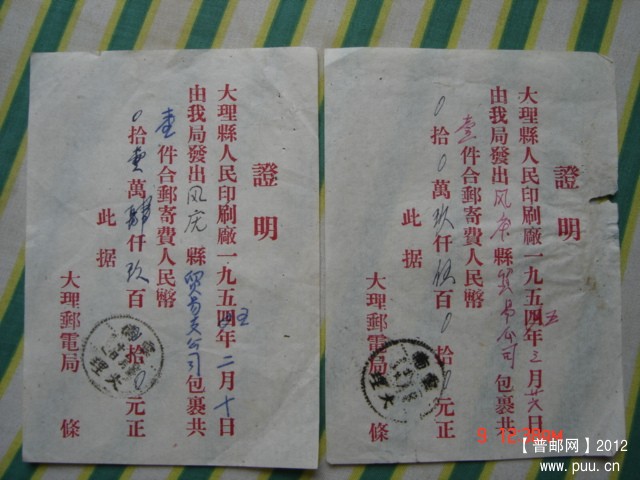 證明
大理縣人民印刷廠一九五五年二月十日
由我局發出风庆縣贸易支公司包裹共
壹件合郵寄費人民幣
0拾壹萬肆仟玖百0拾0元正
此据
大理郵電局 條
雲南
大理
證明
大理縣人民印刷廠一九五五年三月廿日
由我局發出风庆縣贸易公司包裹共
壹件合郵寄費人民幣
0拾0萬玖仟伍百0拾0元正
此据
大理郵電局 條
雲南
大理
【普邮网】2012
www.puu.cn